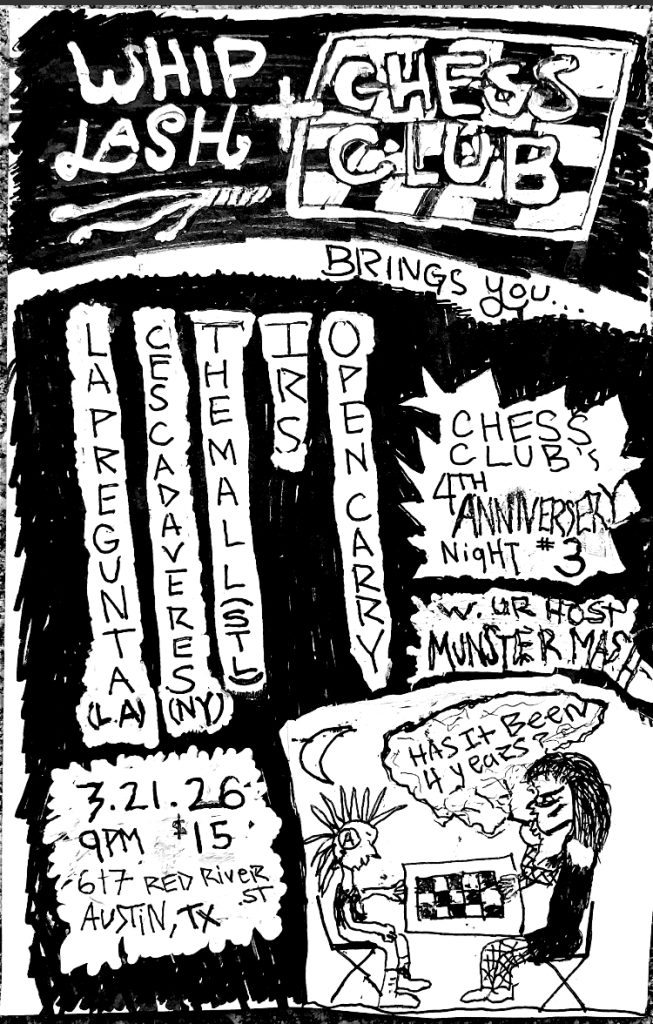 WHIP
LASH
+
CHESS
CLUB
BRINGS you...
LA PREGUNTA (LA)
CES CADAVERES (NY)
THE MALL (STL)
IRS
OPEN CARRY
CHESS
CLUB's
4TH
ANNIVERSERY
NIGHT #3
W. UR HOST
MUNSTER MASH
3.21.26
9PM $15
617 RED RIVER ST
AUSTIN, TX
HAS It BEEN
4 years?
A